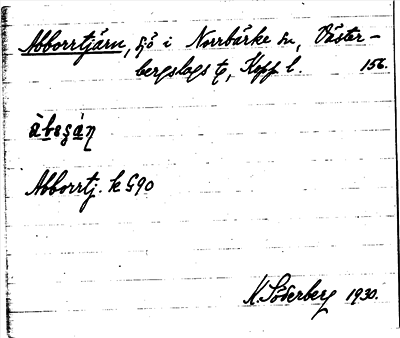 Abborrtjärn, sjö i Norrbärke sn, Väster-
bergslags tg, Kopp. l. 156.
Abborrtj. k G90
K. Söderberg 1930.